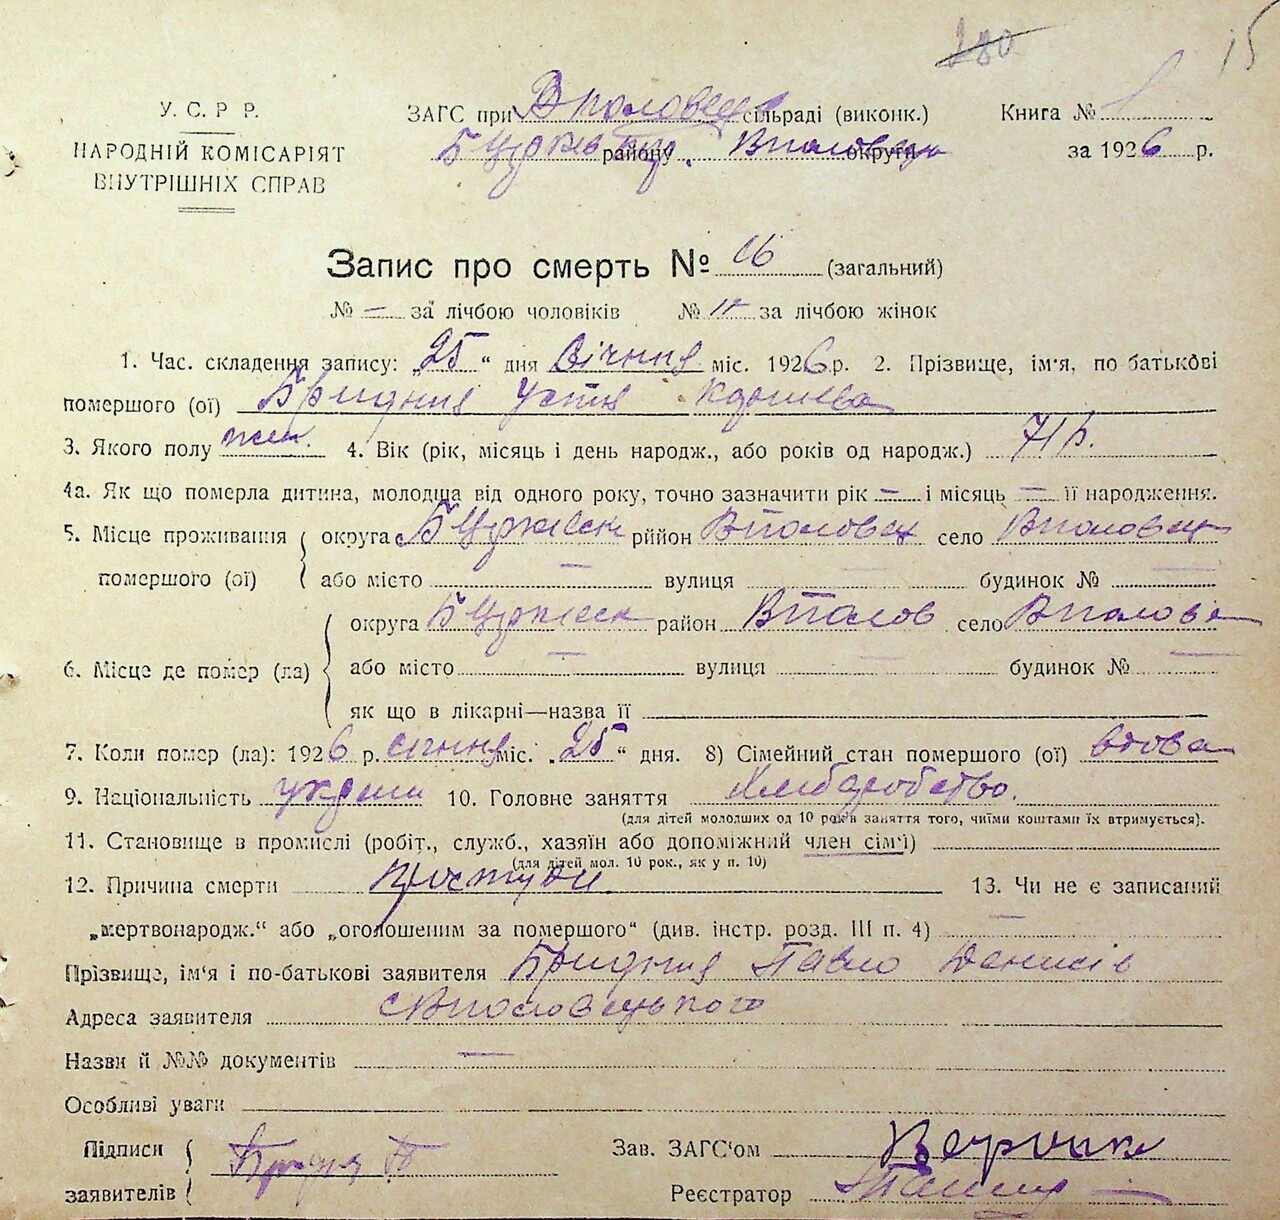 15
У. С. Р. Р.
НАРОДНІЙ КОМІСАРІЯТ
ВНУТРІШНІХ СПРАВ
ЗАГС при Вполовец сільраді (виконк.)
району округи
Книга №
за 1926 р.
Запис про смерть № 16 (загальний)
№ — за лічбою чоловіків № 11 за лічбою жінок
1. Час. складення запису: „25“ дня Січння міс. 1926 р. 2. Прізвище, ім'я, по батькові
помершого (ої) Бридния Устя
3. Якого полу жен. 4. Вік (рік, місяць і день народж., або років од народж.) 71 р.
4а. Як що померла дитина, молодща від одного року, точно зазначити рік — і місяць — її народження.
5. Місце проживання помершого (ої) округа район Вполовец село Вполовец
або місто — вулиця — будинок № —
6. Місце де помер (ла) округа район Вполов село Вполове
або місто — вулиця — будинок № —
як що в лікарні—назва її
7. Коли помер (ла): 1926 р. січння міс. „25“ дня. 8) Сімейний стан помершого (ої) вдова
9. Національність украин 10. Головне заняття Хлибаробство.
(для дітей молодших од 10 років заняття того, чиїми коштами їх втримується).
11. Становище в промислі (робіт., служб., хазяїн або допоміжний член сім'ї)
(для дітей мол. 10 рок., як у п. 10)
12. Причина смерти простуди 13. Чи не є записаний
„мертвонародж.“ або „оголошеним за помершого“ (див. інстр. розд. III п. 4) —
Прізвище, ім'я і по-батькові заявителя Бридния Павло Денисів
Адреса заявителя с Вполовецького
Назви й №№ документів —
Особливі уваги
Підписи заявителів
Зав. ЗАГС'ом
Реєстратор